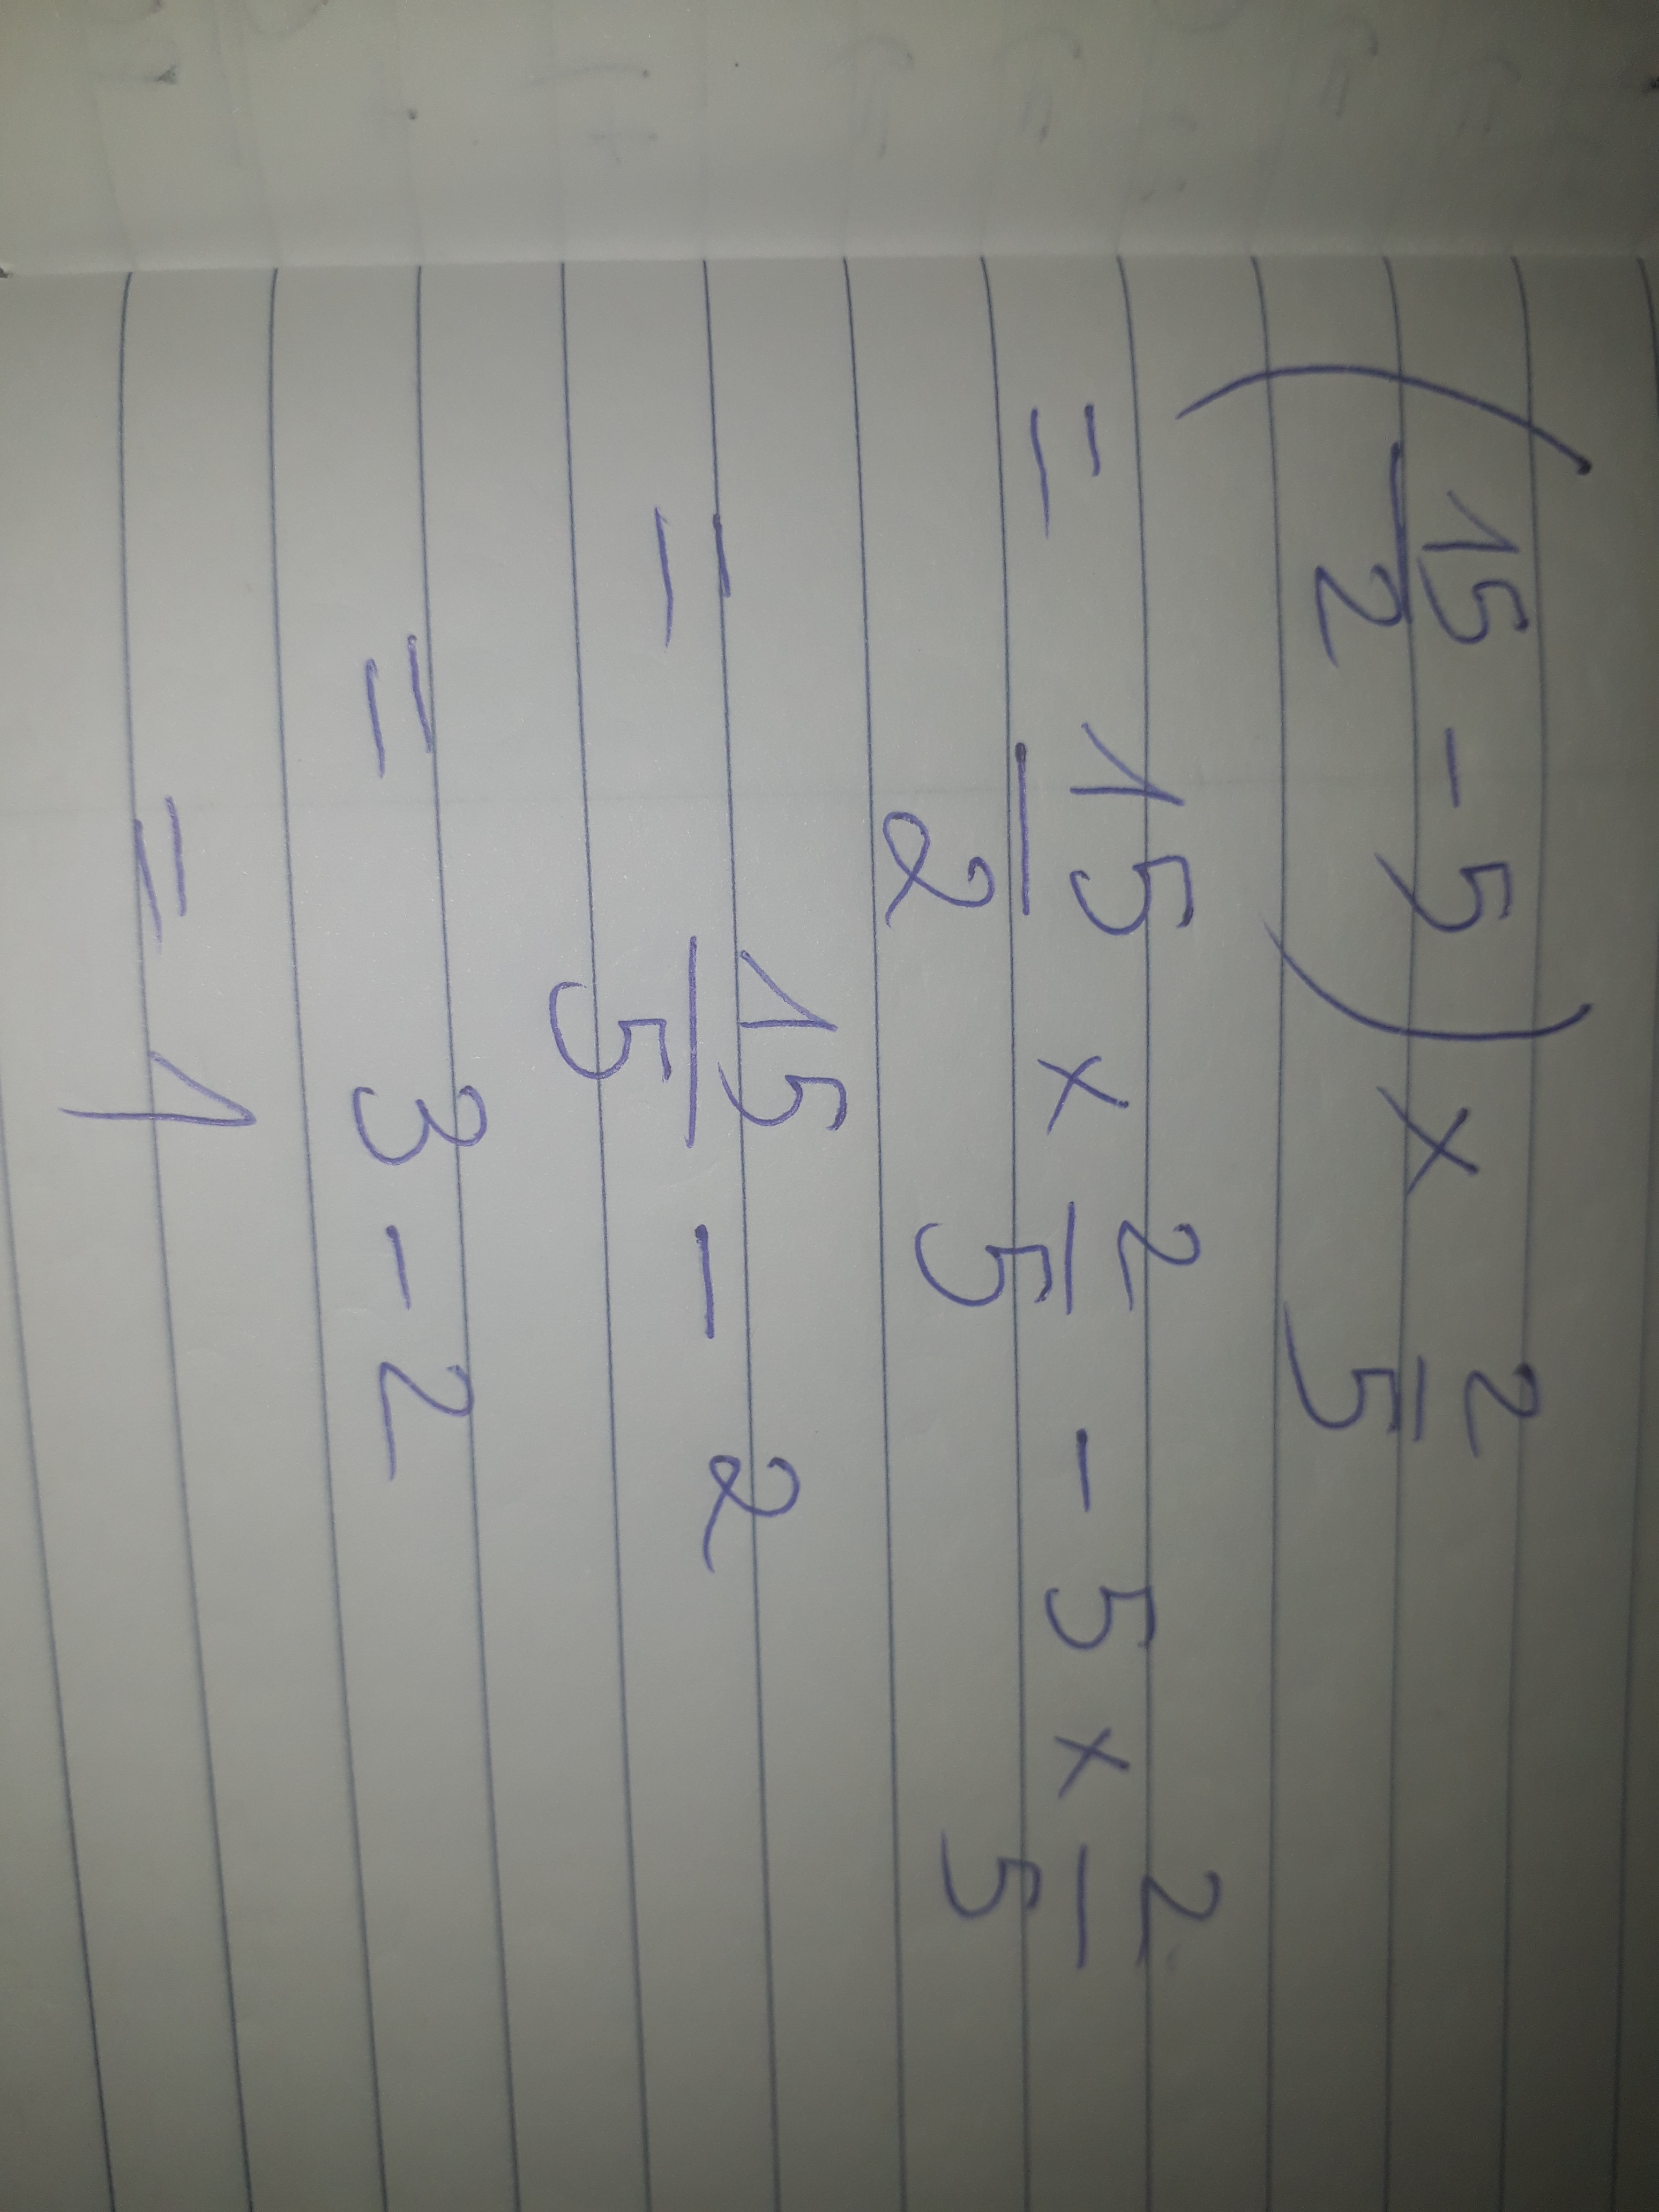 (15/2 - 5) × 2/5
= 15/2 × 2/5 - 5 × 2/5
= 15/5 - 2
= 3 - 2
= 1